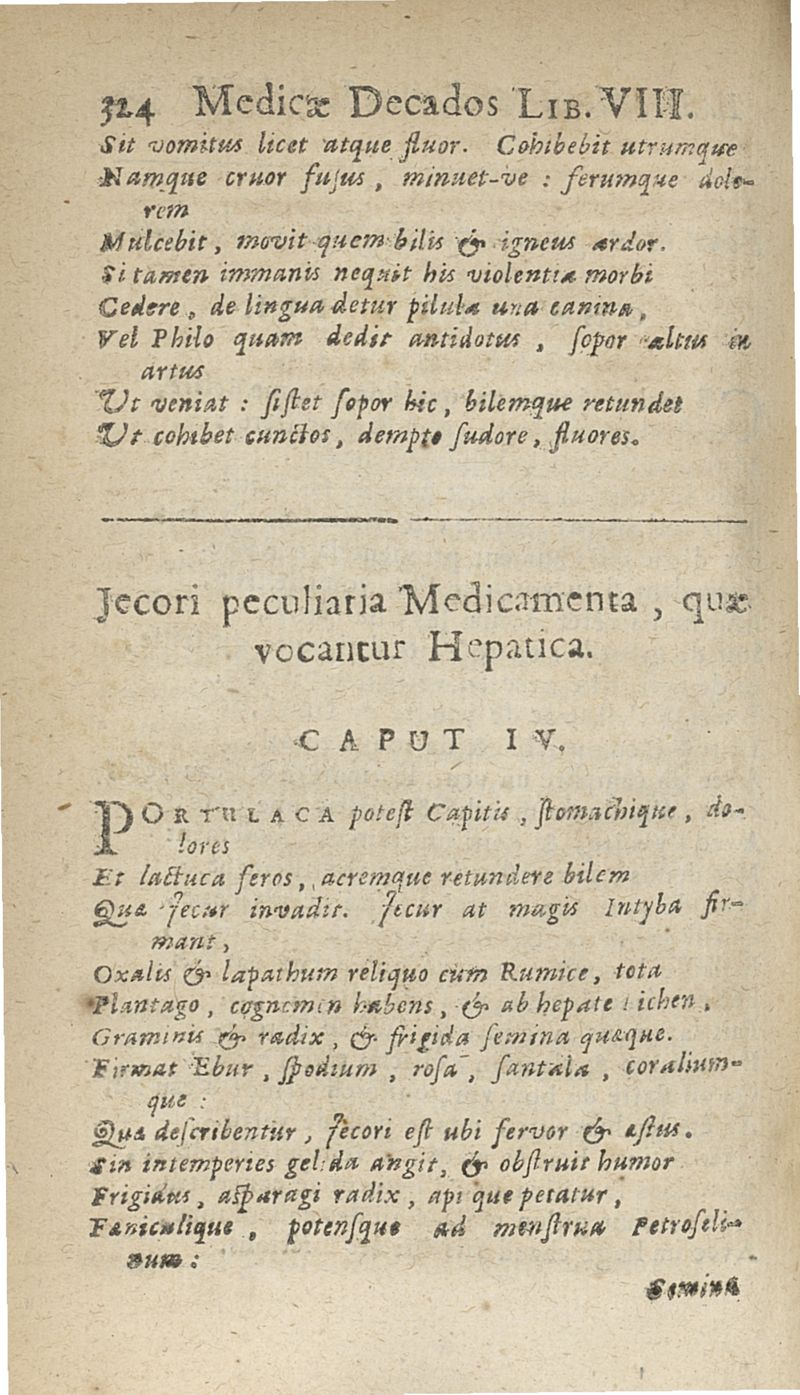 324 Medicæ Decados LIB. VIII.
Sit vomitus licet atque fluor. Cohibebit utrumque
Namque cruor fusus, minuet-ve : ferumque dolo-
rem
Mulcebit, movit quem bilis & igneus ardor.
Si tamen immanis nequit his violentia morbi
Cedere, de lingua detur pilula una canina,
Vel Philo quam dedit antidotus, sopor altus in
artus
Ut veniat : sistet sopor hic, bilemque retundet
Ut cohibet cunctos, dempto sudore, fluores.
Jecori peculiaria Medicamenta, quæ
vocantur Hepatica.
CAPUT IV.
PORTULACA potest Capitis, stomachique, do-
lores
Et lactuca feros, acremque retundere bilem
Quæ Jecur invadit. Jecur at magis Intyba fir-
mant,
Oxalis & lapathum reliquo cum Rumice, tota
Plantago, cognomen habens, & ab hepate lichen,
Graminis & radix, & frigida semina quæque.
Firmat Ebur, spodium, rosa, santala, coralium-
que :
Quæ describentur, Jecori est ubi fervor & æstus.
Sin intemperies gelida angit, & obstruit humor
Frigidus, asparagi radix, apiique petatur,
Fæniculique, potensque ad menstrua Petroseli-
num :
Semina